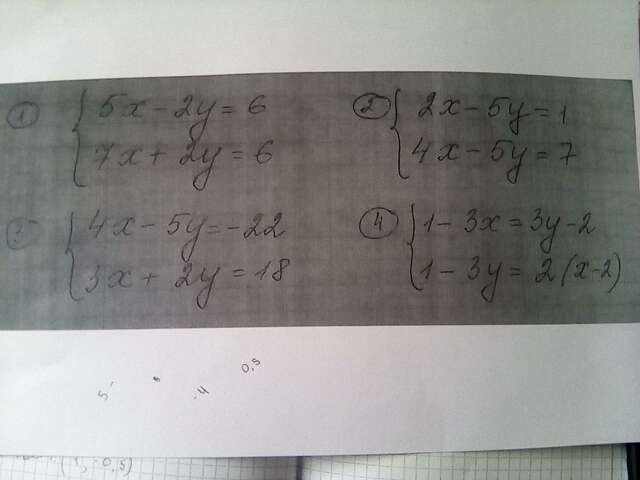 1 5x - 2y = 6
7x + 2y = 6
2 2x - 5y = 1
4x - 5y = 7
3 4x - 5y = -22
3x + 2y = 18
4 1 - 3x = 3y - 2
1 - 3y = 2(x - 2)
5 -4 0,5
(1, -0,5)